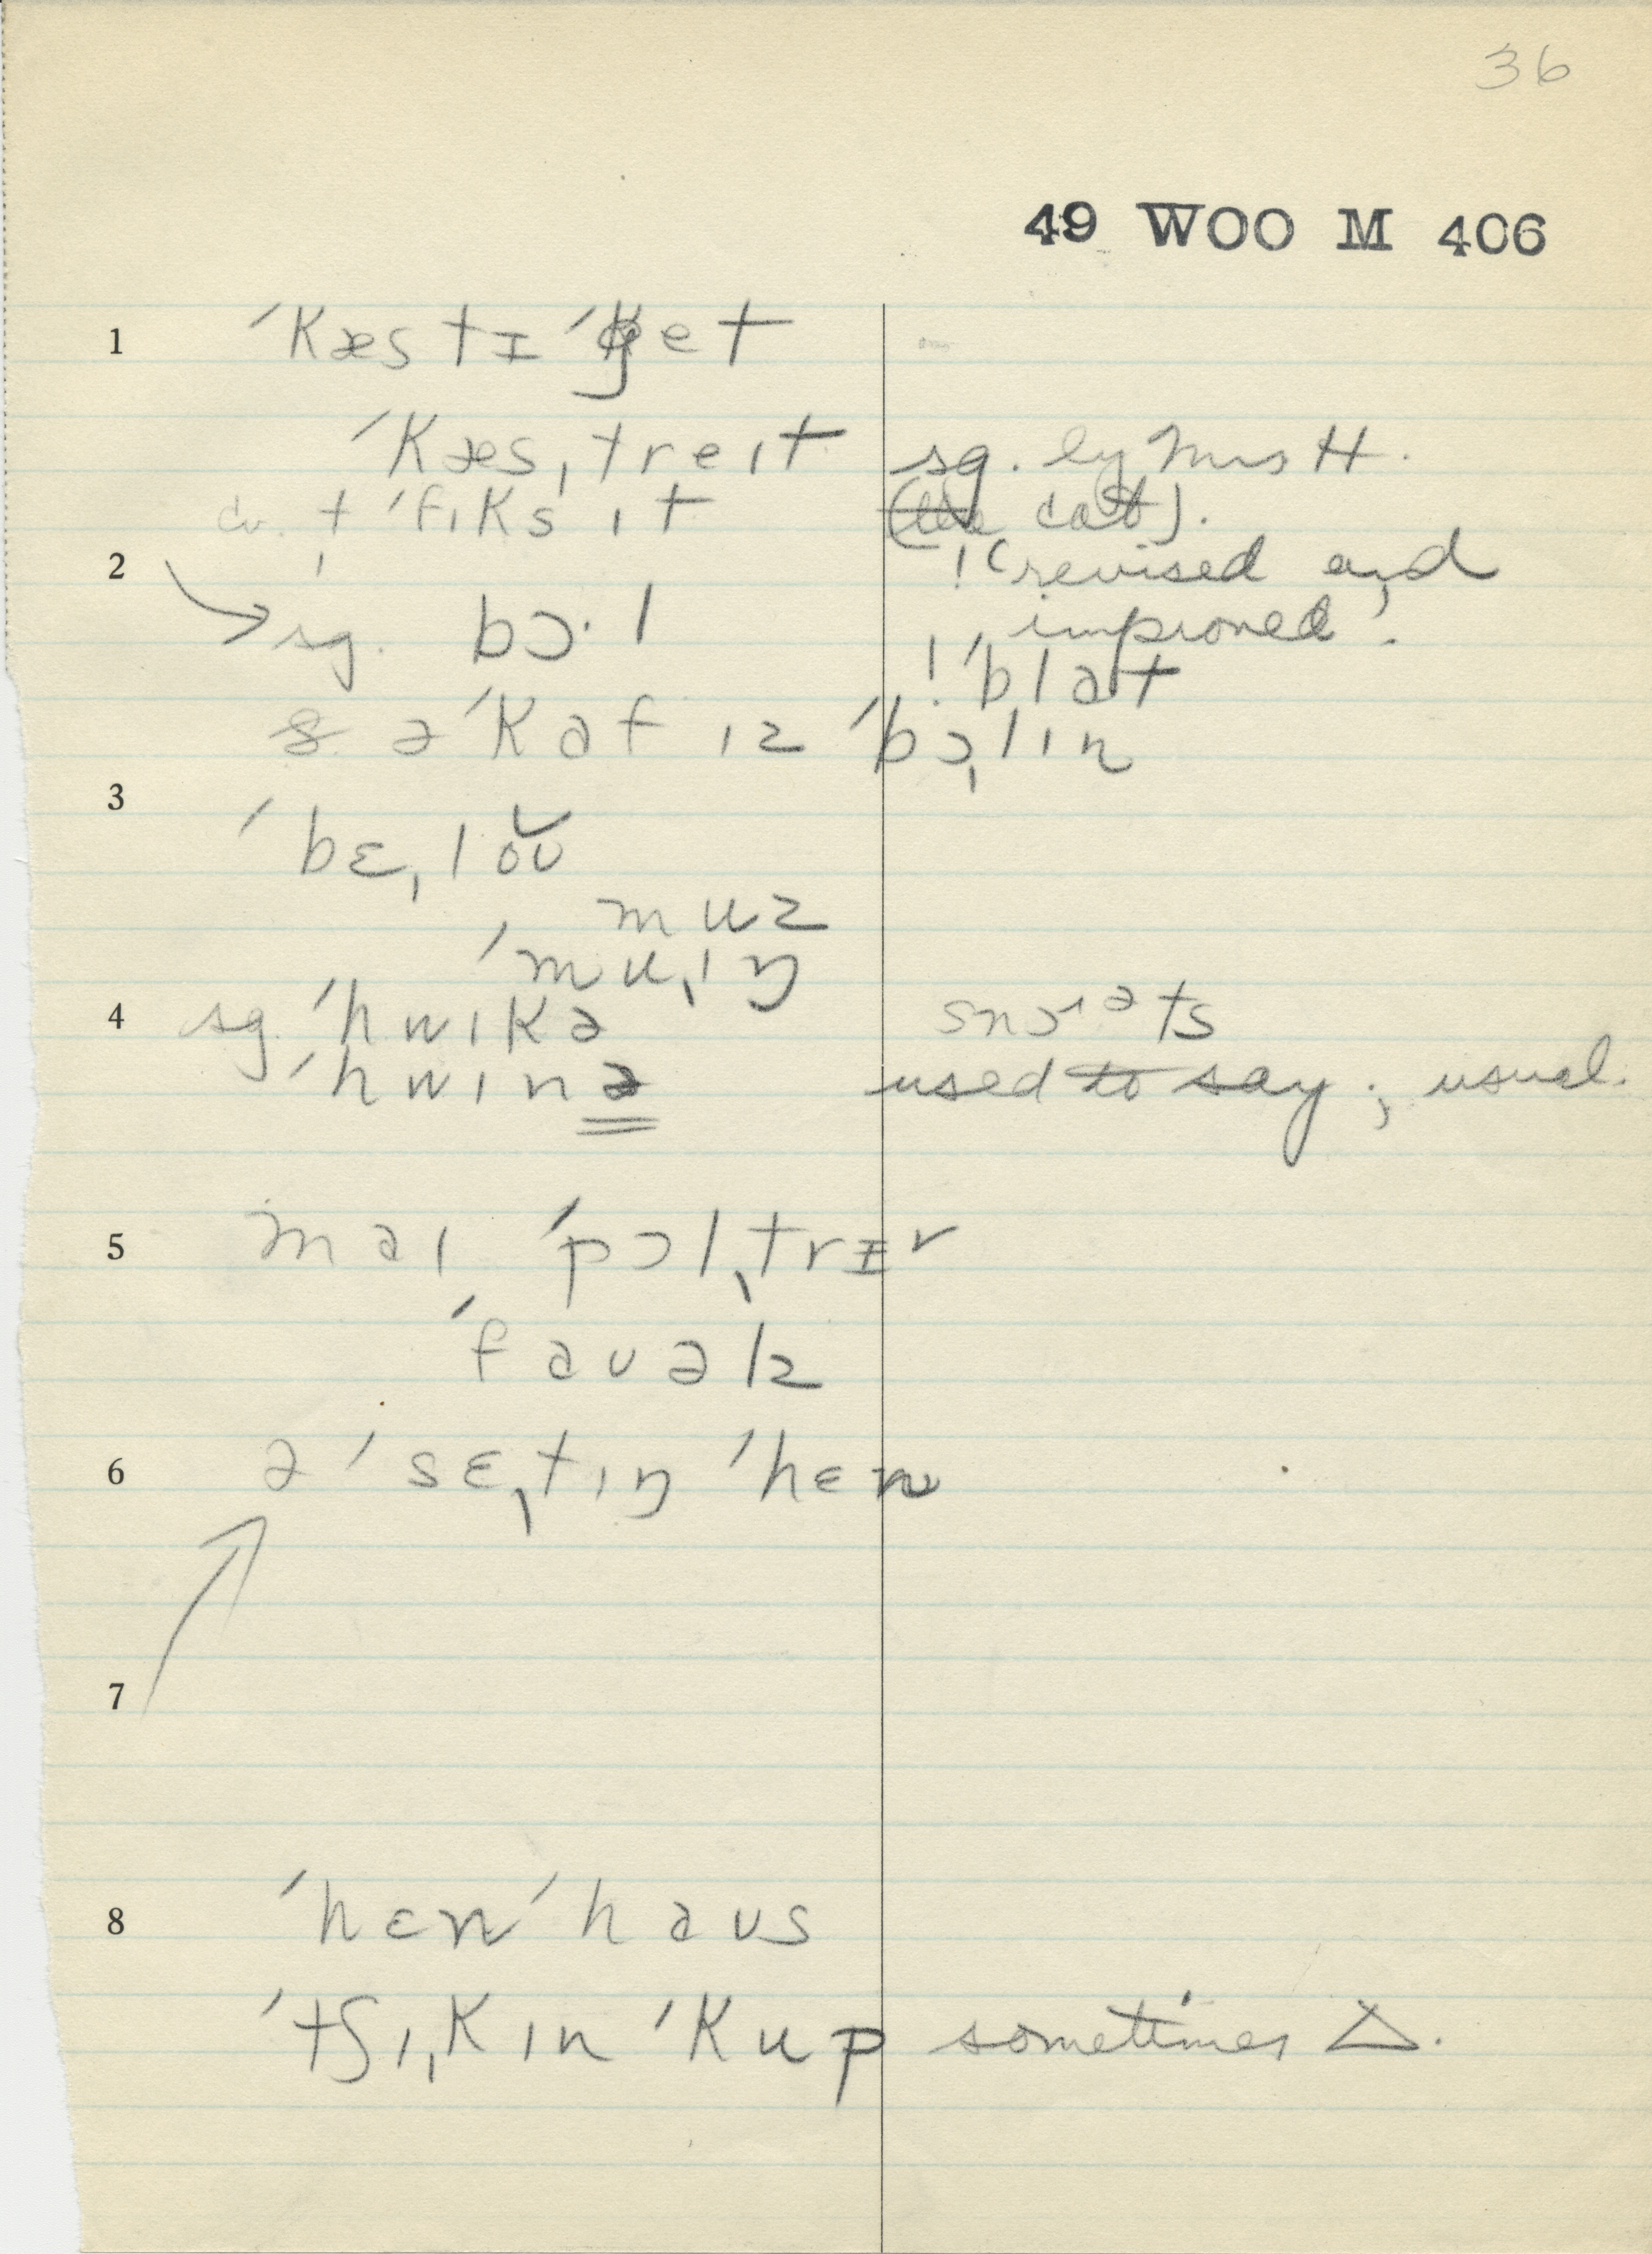 36
49 WOO M 406
1 ˈkæstɪˈget
ˈkæsˌtreɪt sg. by Mrs H.
cv. tˌ ˈfɪks ɪt (the cat).
2 ! (revised and
→ sg. bɔ·l improved).
! ˈblat
ə ˈkaf ɪz ˈbɔˌlɪn
3
ˈbɛˌlou
muz
ˈmuˌɪŋ
4 sg. ˈhwɪkə snɔrəts
ˈhwɪnə used to say ; usual.
5 maɪ ˈpɔlˌtrɪr
ˈfauəlz
6 ə ˈsɛˌtɪŋ ˈhɛn
7
8 ˈhɛn ˈhaus
ˈtʃɪˌkɪn ˈkup sometimes △.